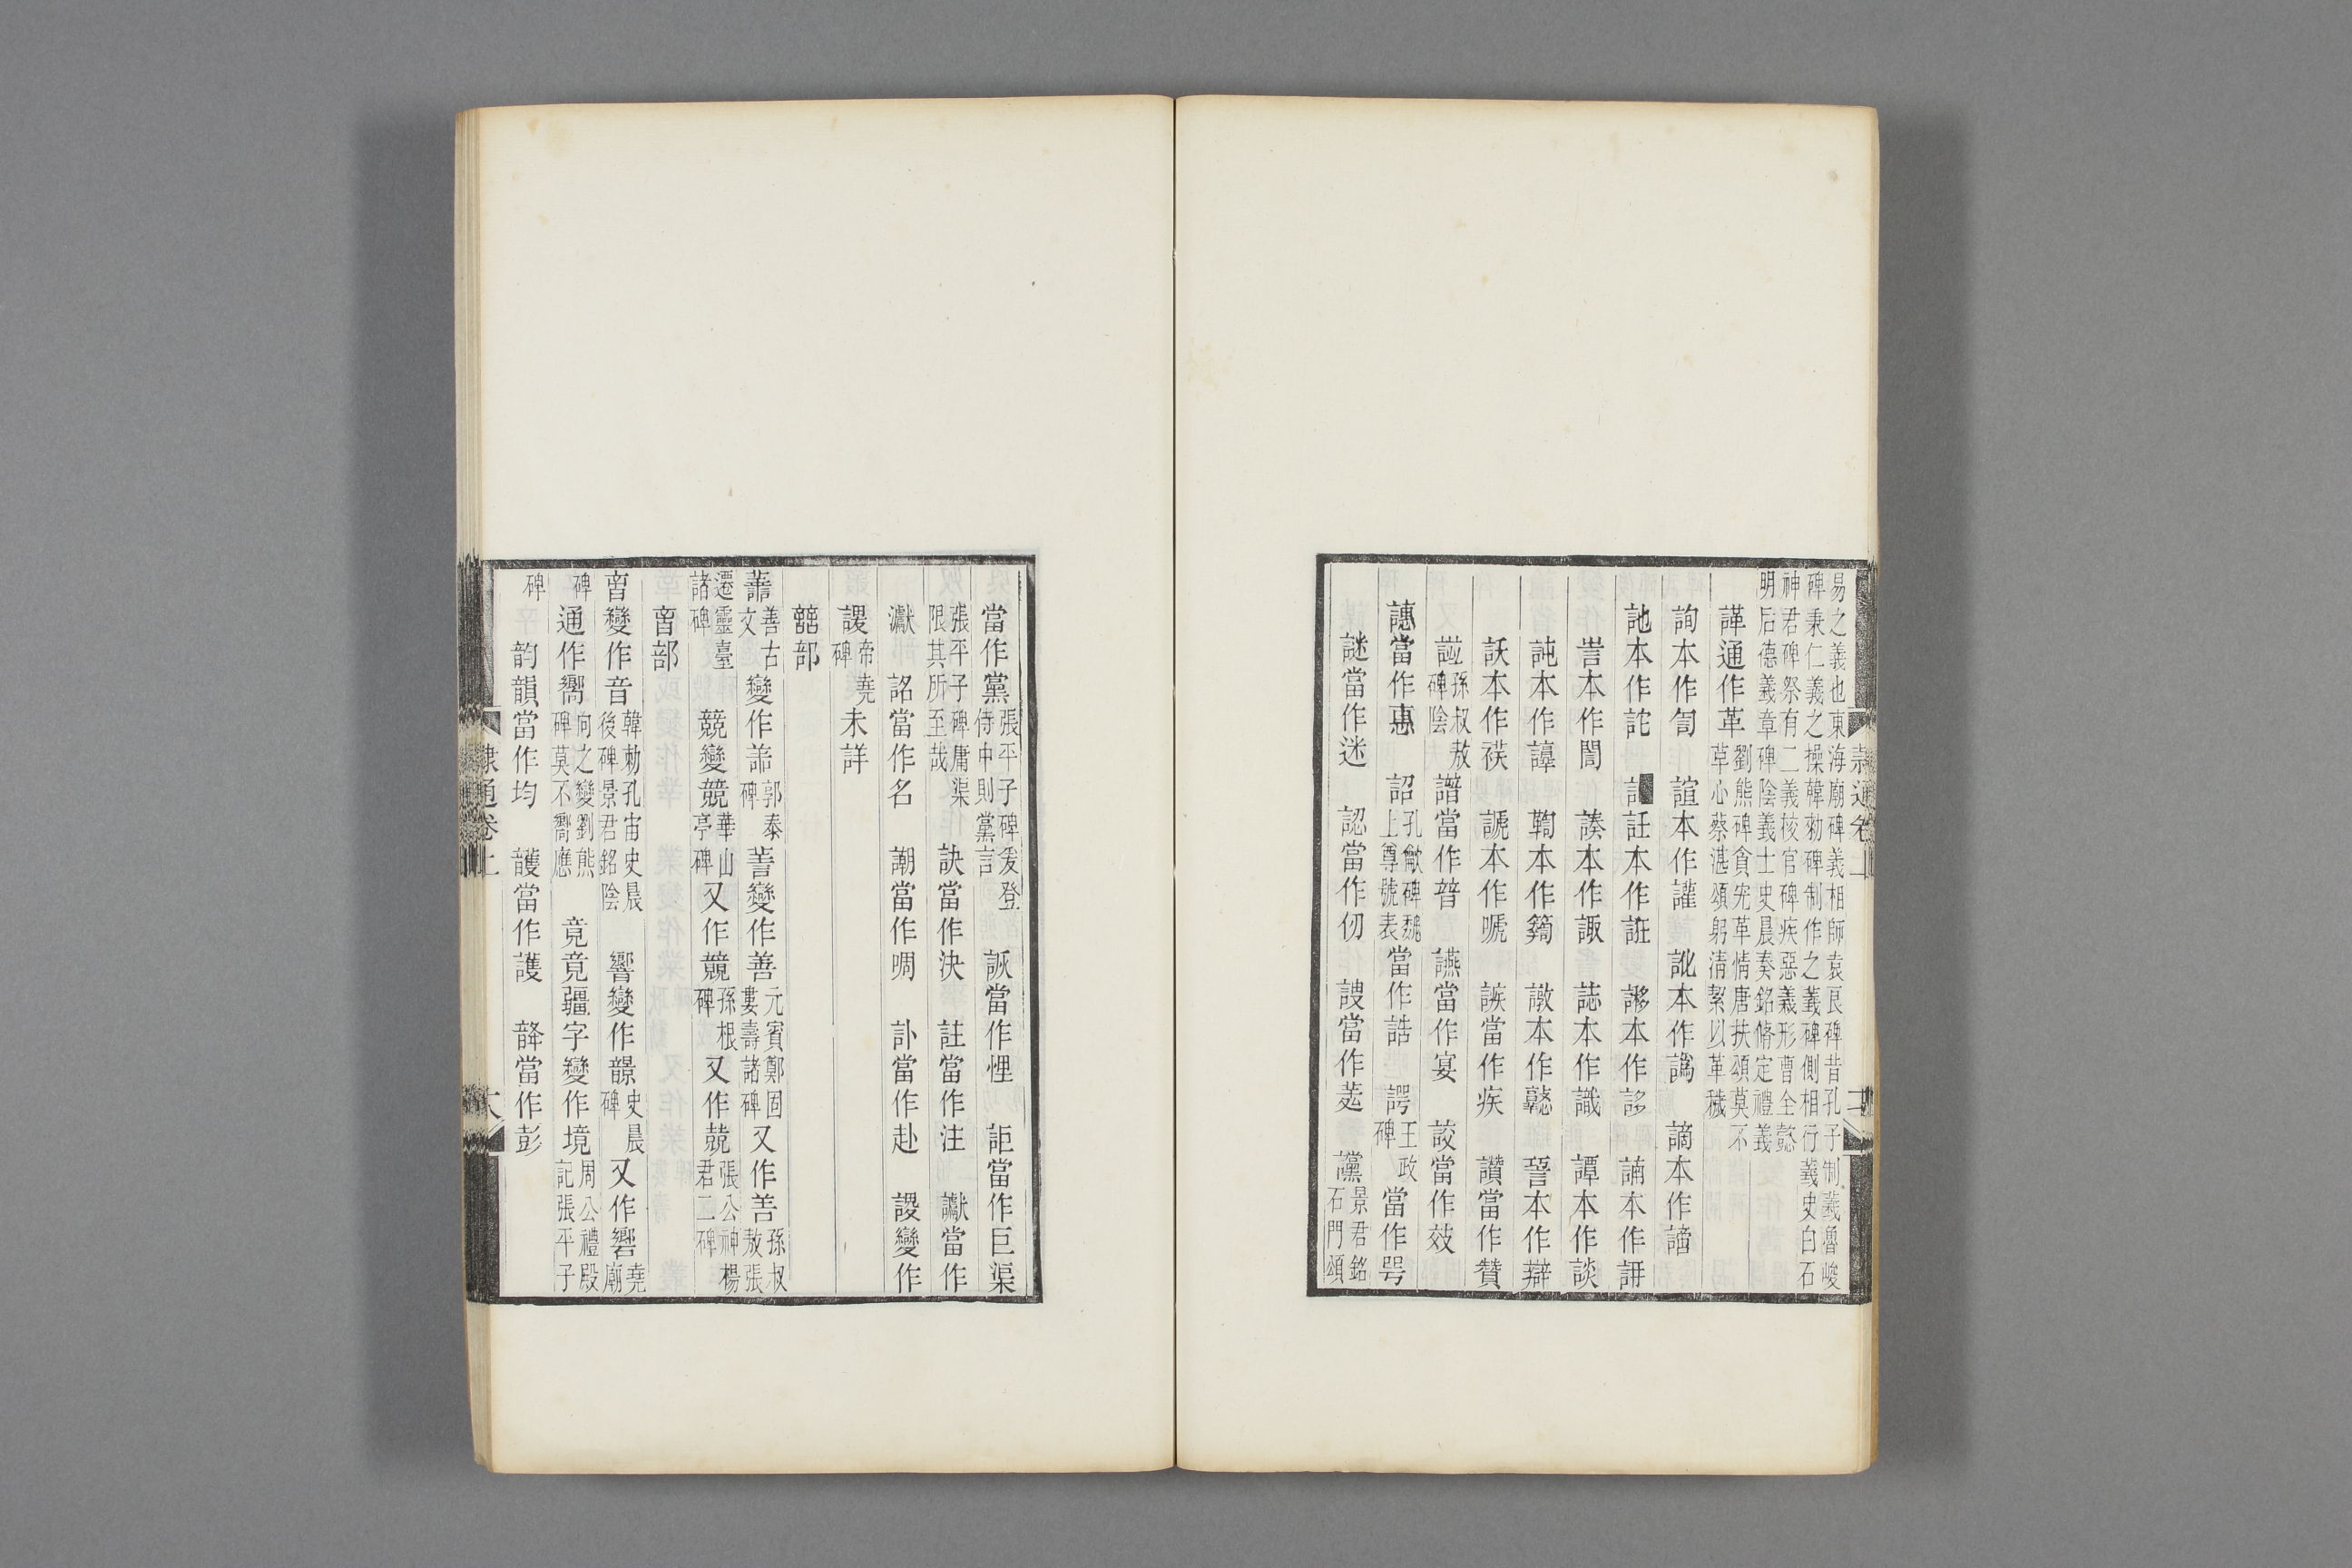 易之義也東海廟碑義相師袁良碑昔孔子制義魯峻
碑秉仁義之操韓勑碑制作之義碑側相行義史白石
神君碑祭有二義校官碑疾惡義形曹全懿
明后德義章碑陰義士史晨奏銘脩定禮義
謹通作革
劉熊碑貪宪革情唐扶頌莫不
草心蔡湛頌躬淸絜以革穢
詢本作訇 諠本作讙 訛本作譌 謫本作讁
訑本作詑 詿本作誑 謻本作誃 誧本作誁
訔本作誾 諉本作諏 誌本作識 譚本作談
訰本作諄 鞫本作籟 譈本作憝 䛒本作辯
訞本作祅 謕本作嗁 誺當作疾 讚當作贊
諡
孫叔敖
碑陰
譖當作朁 讌當作宴 詨當作效
譓當作惠 詔
孔龢碑魏
上尊號表
當作誥 諤
王政
碑
當作咢
謎當作迷 認當作仞 謏當作 讜
景君銘
石門頌
當作黨
張平子碑爰登
侍中則黨言
詼當作悝 詎當作巨渠
張平子碑庸渠
限其所至哉
訣當作決 註當作注 讞當作
瀗 詺當作名 謿當作啁 訃當作赴 謖變作
謖
帝堯
碑
未詳
誩部
譱
善古
文
變作善
郭泰
碑
𧨅變作善
元賓鄭固
婁壽諸碑
又作善
孫叔
敖張
遷靈臺
諸碑
競變競
華山
亭碑
又作競
孫根
碑
又作兢
張公神楊
君二碑
音部
音變作音
韓勑孔宙史晨
後碑景君銘陰
響變作韻
史晨
碑
又作響
堯
廟
碑
通作嚮
向之變劉熊
碑莫不嚮應
竟竟疆字變作境
周公禮殿
記張平子
碑
韵韻當作均 頀當作護 韸當作彭
隸通卷上 大